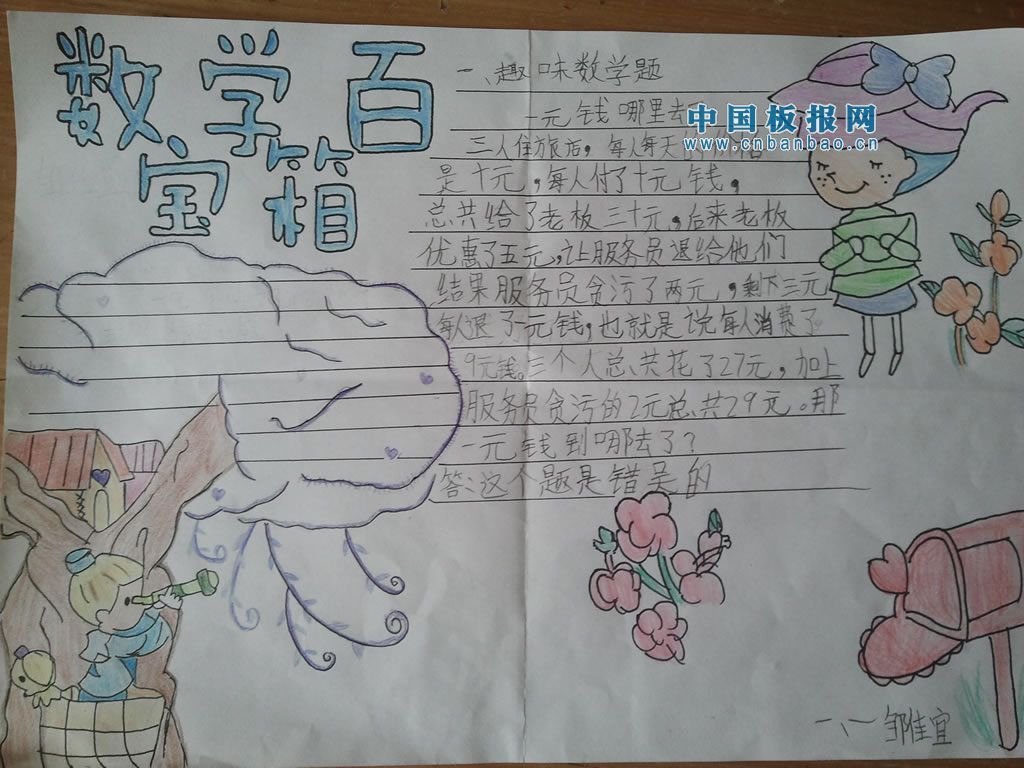 数学百
宝箱
一、趣味数学题
一元钱哪里去
中国板报网
www.cnbanbao.cn
三人住旅店，每人每天的价格
是十元，每人付了十元钱，
总共给了老板三十元，后来老板
优惠了五元，让服务员退给他们
结果服务员贪污了两元，剩下三元
每人退了一元钱，也就是说每人消费了
9元钱。三个人总共花了27元，加上
服务员贪污的2元总共29元。那
一元钱到哪去了？
答：这个题是错吴的
一、一 邹佳宜